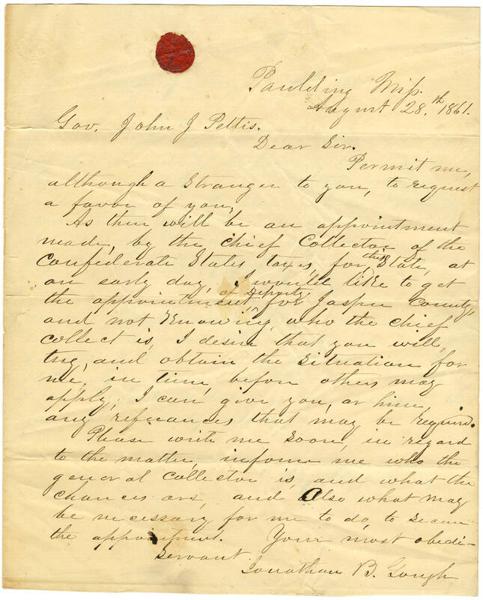 Paulding Miss.
August 28.th 1861.
Gov. John J Pettis.
Dear Sir.
Permit me,
although a stranger to you, to request
a favor of you,
As there will be an appointment
made, by the chief Collector of the
Confederate States taxes, for this State, at
an early day, I would like to get
the appointment, of deputy, for Jasper County
and not knowing who the chief
collect is, I desire that you will
try, and obtain the situation for
me, in time, before others may
apply, I can give you, or him,
any referances that may be required.
Please write me soon, in regard
to the matter, inform me who the
general collector is and what the
chances are, and also what may
be necessary for me to do to secure
the appointment. Your most obedi-
servant,
Jonathan B. Gough